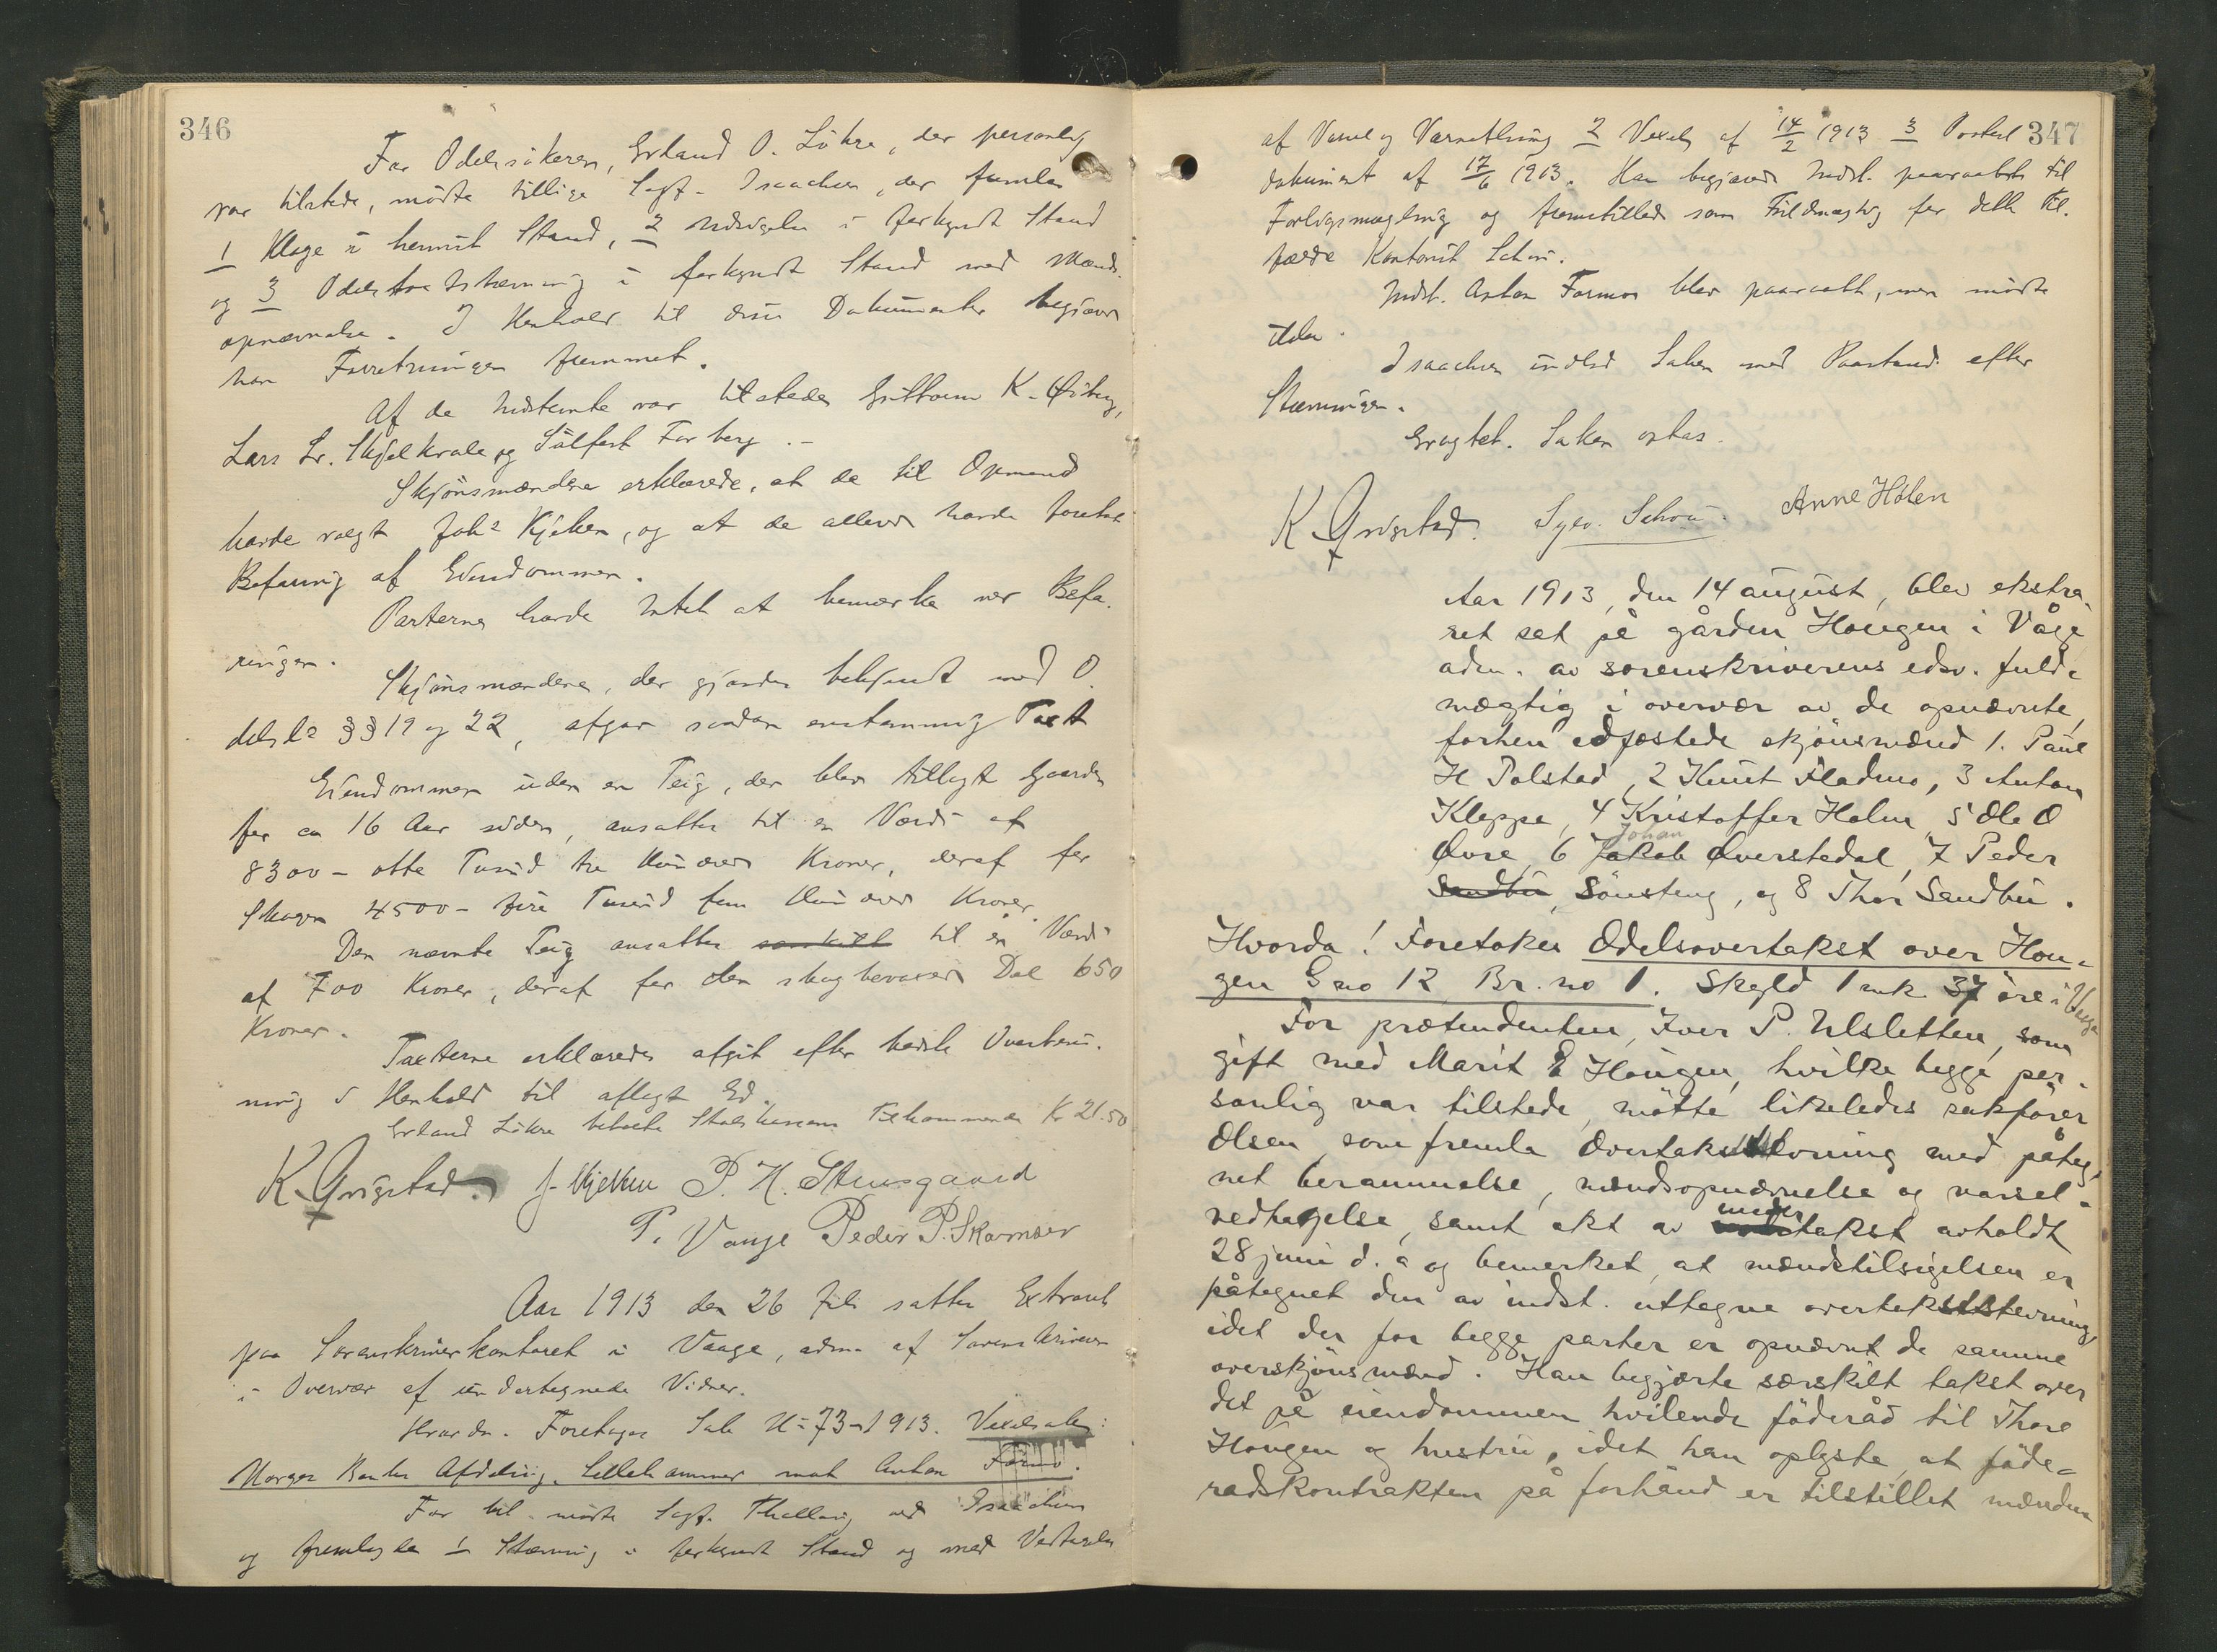 346
For Odelssøkeren, Erland O. Løkre, der personlig
var tilstede, mødte tillige Sagf. Isaachsen, der fremla
1 Klage i hevnit Stand, 2 Udsigelse i forkyndt Stand
og 3 Odelstaxtstævning i forkyndt Stand med Mænds-
opnævnelse. I Henhold til disse Dokumenter begjæred
han Forretningen fremmet.
Af de Indstevnte var tilstede Guttorm K. Øiberg,
Lars Lr. Skjelkvale og Sülfest Forberg.-
Skjønsmændene erklærede, at de til Opmand
havde valgt Johs Kjæken, og at de allerede havde foretat
Befaring af Eiendommen.
Parterne havde Intet at bemærke ved Befa-
ringen.
Skjønsmændene, der gjordes bekjendt med O-
delsls §§ 19 og 22, afgav saadan enstemmig Taxt
Eiendommen uden en Teig, der blev tillagt Gaarden
for ca 16 Aar siden, ansattes til en Værdi af
8300 - otte Tusind tre Hundrede Kroner, deraf for
Skogen 4500 - fire Tusind fem Hundrede Kroner.
Den nævnte Teig ansattes særskilt til en Værdi
af 700 Kroner, deraf for den skogbevoxede Del 650
Kroner.
Taxterne erklæredes afgit efter bedste Overbevis-
ning i Henhold til aflagt Ed.
Erland Løkre betalte Skjønsmændenes Tilkommende Kr 21.50
K. Grigstad. J. Kjekken P. H. Stensgaard
P. Vange Peder P. Skarnser
Aar 1913 den 26 Juli sattes Extraret
paa Sorenskriverkontoret i Vaage, adm. af Sorenskriveren
i Overvær af undertegnede Vidner.
Hvorda. Foretoges Sak No 73-1913. Vexelsak:
Norges Banks Afdeling Lillehammer mot Anton Formo.
For Cit. mødte Sagf. Thallaug ved Isaachsen
og fremlagde 1 Stævning i forkyndt Stand og med Vedtagelse
347
af Varsel og Værnething 2 Vexel af 14/2 1913 3 Protest
dokument af 17/6 1913. Han begjærede Indst. paaraabt til
Forligsmægling og fremstillede som Fuldmægtig for dette Til-
fælde Kontorist Schou.
Indst. Anton Formo blev paaraabt, men mødte
ikke.
Isaachsen indlod Saken med Paastand efter
Stævningen.
Eragtet. Saken optas.
K. Grigstad. Sylv. Schou. Anne Holen
Aar 1913, den 14 august, blev ekstra-
ret set på gården Hougen i Våge
adm. av sorenskriverens edsv. fuld-
mægtig i overvær av de opnævnte,
forhen edfæstede skjønsmænd 1. Paul
H Polstad, 2 Knut Fladmo, 3 Anton
Kleppe, 4 Kristoffer Holm, 5 Ole O
Øvre, 6 Jakob Johan Øverstedal, 7 Peder
Sandbu, Sønsteng, og 8 Thor Sandbu.
Hvorda! Foretokes Odelsovertakst over Hou-
gen G no 12 Br. no 1. Skyld 1 mk 37 øre i Vaage
For prætendenten, Iver P. Ulsletten, som
gift med Marit E Hougen, hvilke begge per-
sonlig var tilstede, møtte likeledes sakfører
Olsen, som fremla Overtakststevning med påteg-
net berammelse, mændsopnævnelse og varsel-
vedtagelse, samt akt av undertakst avholdt
28 juni d. a og bemerket, at mændstilsigelsen er
påtegnet den av indst. uttagne overtakststevning,
idet der for begge parter er opnævnt de samme
overskjønsmænd. Han begjærte særskilt takst over
det på eiendommen hvilende føderåd til Thore
Hougen og hustru, idet han oplyste, at føde-
rådskontrakten på forhånd er tilstillet mændene